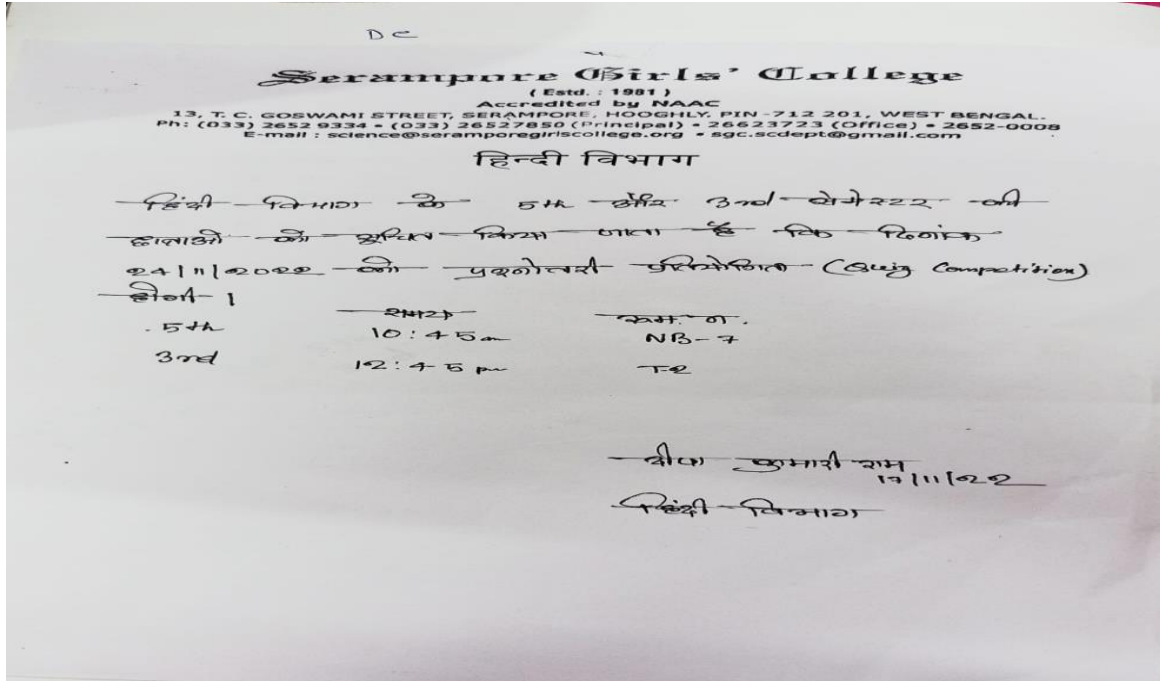 DC
Serampore Girls' College
( Estd. : 1981 )
Accredited by NAAC
13, T. C. GOSWAMI STREET, SERAMPORE, HOOGHLY. PIN -712 201, WEST BENGAL.
Ph: (033) 2652 9334 • (033) 26527850 (Principal) • 26623723 (Office) • 2652-0008
E-mail : science@seramporegirlscollege.org • sgc.scdept@gmail.com
हिन्दी विभाग
हिंदी विभाग के 5th और 3rd सेमेस्टर की
छात्राओं को सूचित किया जाता है कि दिनांक
24|11|2022 को प्रश्नोत्तरी प्रतियोगिता (Quiz Competition)
होगी ।
समय रूम. न.
5th 10:45 am NB-7
3rd 12:45 pm T2
दीपा कुमारी राम
17|11|22
हिंदी विभाग